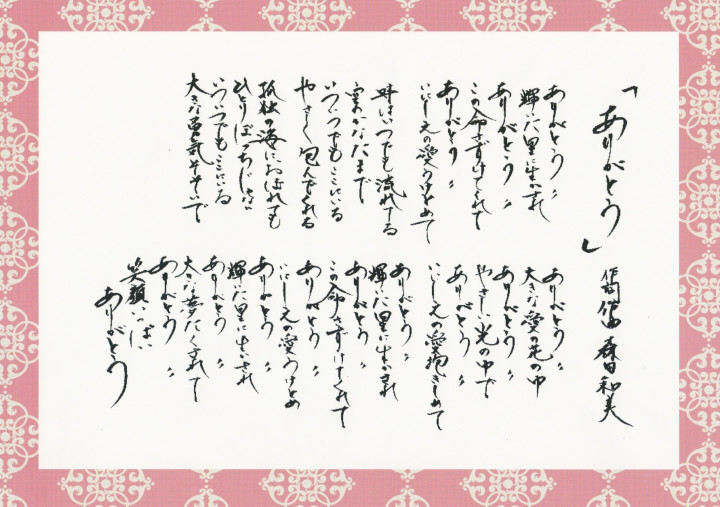 「ありがとう」
作詞 作曲 森田和美
ありがとう〃
輝いた星に生かされ
ありがとう〃
この命さずけてくれて
ありがとう〃
いにしえの愛うけとめて
時はいつでも流れてる
宇宙のかなたまで
いついつでもここにいる
やさしく包んでくれる
孤独の海におぼれても
ひとりぼっちじゃない
いついつでもここにいる
大きな勇気そそいで
ありがとう〃
大きな愛の花の中
ありがとう〃
やさしい光の中で
ありがとう〃
いにしえの愛抱きしめて
ありがとう〃
輝いた星に生かされ
ありがとう〃
この命さずけてくれて
ありがとう〃
いにしえの愛うけとめ
ありがとう〃
輝いた星に生かされ
ありがとう〃
大きな夢たくされて
ありがとう〃
笑顔いっぱい
ありがとう